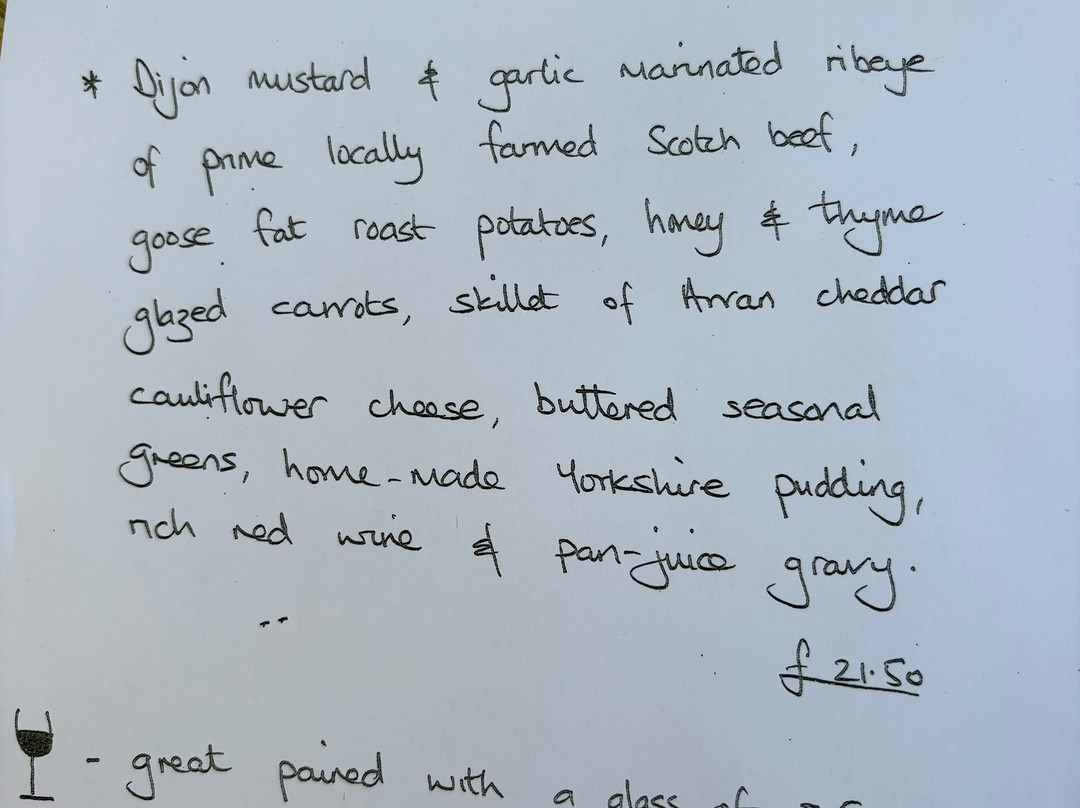 * Dijon mustard & garlic marinated ribeye
of prime locally farmed Scotch beef,
goose fat roast potatoes, honey & thyme
glazed carrots, skillet of Arran cheddar
cauliflower cheese, buttered seasonal
greens, home-made Yorkshire pudding,
rich red wine & pan-juice gravy.
£21.50
- great paired with a glass of